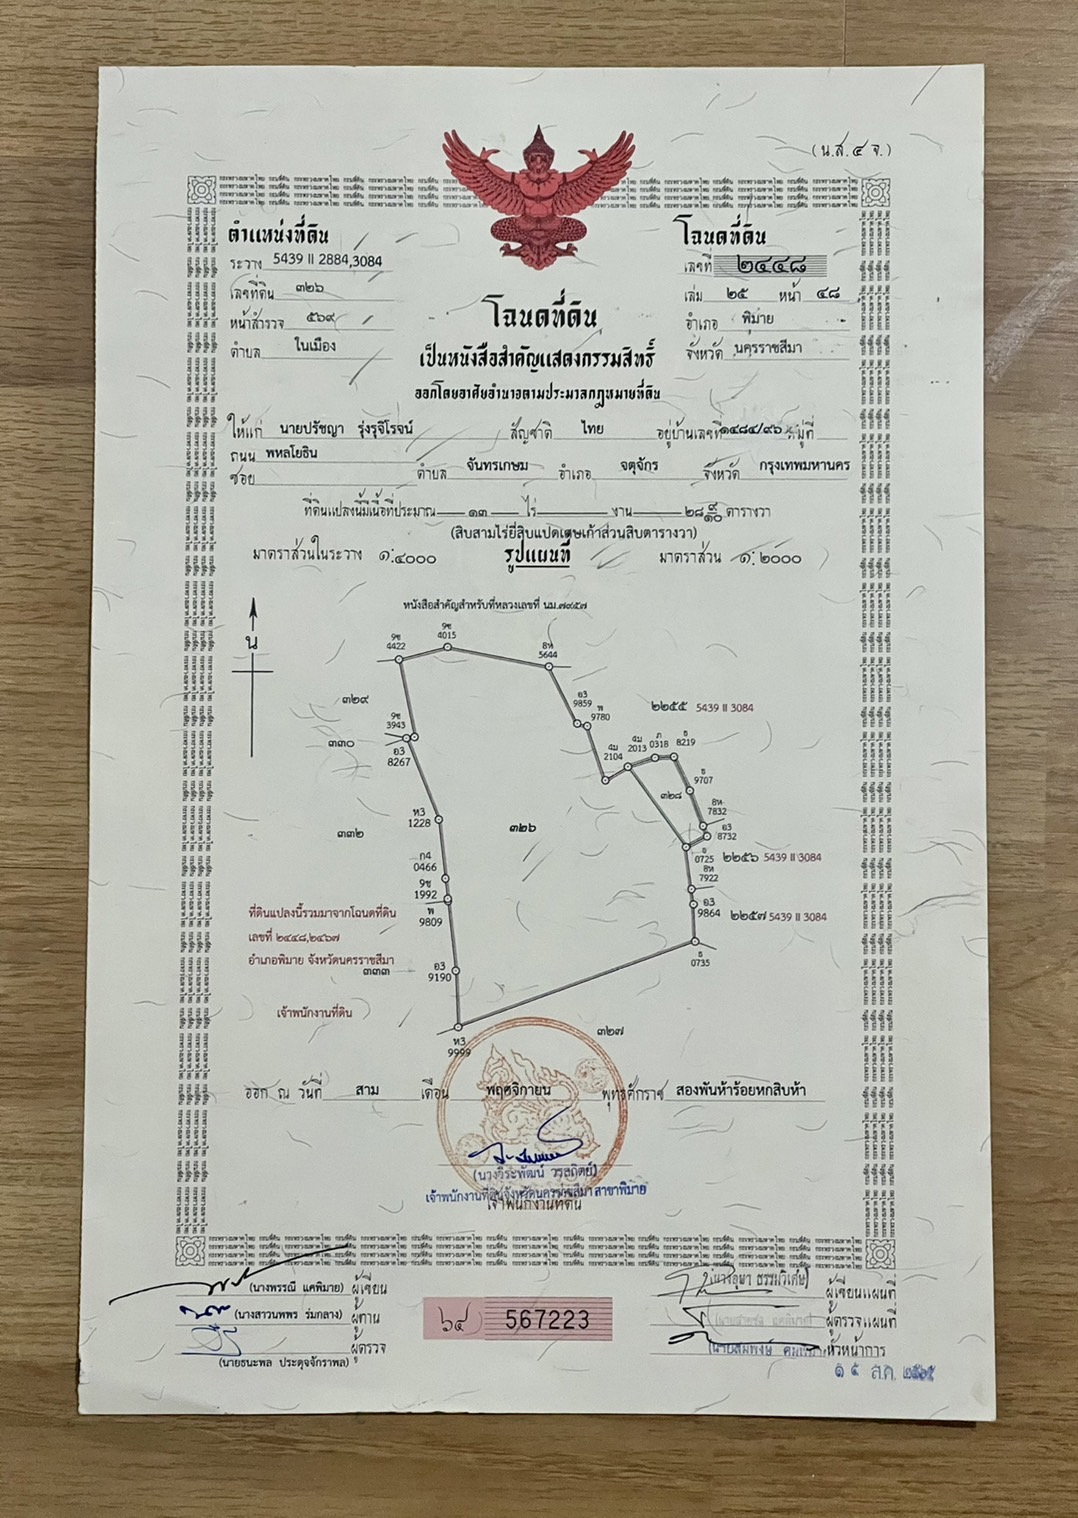 (น.ส.๔ จ.)
ตำแหน่งที่ดิน
ระวาง 5439 II 2884,3084
เลขที่ดิน ๓๒๖
หน้าสำรวจ ๕๖๙
ตำบล ในเมือง
โฉนดที่ดิน
เลขที่ ๒๔๔๘
เล่ม ๒๕ หน้า ๔๘
อำเภอ พิมาย
จังหวัด นครราชสีมา
โฉนดที่ดิน
เป็นหนังสือสำคัญแสดงกรรมสิทธิ์
ออกโดยอาศัยอำนาจตามประมวลกฎหมายที่ดิน
ให้แก่ นายปรัชญา รุ่งรุจิโรจน์ สัญชาติ ไทย อยู่บ้านเลขที่ ๑๔๘๔/๙๖ หมู่ที่
ถนน พหลโยธิน
ซอย ตำบล จันทรเกษม อำเภอ จตุจักร จังหวัด กรุงเทพมหานคร
ที่ดินแปลงนี้มีเนื้อที่ประมาณ ๑๓ ไร่ งาน ๒๘ ๙/๑๐ ตารางวา
(สิบสามไร่ยี่สิบแปดเศษเก้าส่วนสิบตารางวา)
มาตราส่วนในระวาง ๑:๔๐๐๐ รูปแผนที่ มาตราส่วน ๑:๒๐๐๐
หนังสือสำคัญสำหรับที่หลวงเลขที่ นม.๗๙๕๗
น
9ช
4422
9ช
4015
8ห
5644
๓๒๙
อ3
9859
พ
9780
๒๒๕๕ 5439 II 3084
9ช
3943
๓๓๐
อ3
8267
4ม
2104
4ม
2013
ภ
0318
ธ
8219
ธ
9707
๓๒๘
8ห
7832
ห3
1228
๓๓๒
๓๒๖
อ3
8732
ธ
0725
๒๒๕๖ 5439 II 3084
ก4
0466
8ห
7922
9ช
1992
พ
9809
อ3
9864
๒๒๕๗ 5439 II 3084
ที่ดินแปลงนี้รวมมาจากโฉนดที่ดิน
เลขที่ ๒๔๔๘,๒๔๖๗
อำเภอพิมาย จังหวัดนครราชสีมา
๓๓๓
อ3
9190
ธ
0735
เจ้าพนักงานที่ดิน
ห3
9999
๓๒๗
ออก ณ วันที่ สาม เดือน พฤศจิกายน พุทธศักราช สองพันห้าร้อยหกสิบห้า
(นางวีระพัฒน์ วรสถิตย์)
เจ้าพนักงานที่ดินจังหวัดนครราชสีมา สาขาพิมาย
เจ้าพนักงานที่ดิน
(นางพรรณี แคพิมาย) ผู้เขียน
(นางสาวนพพร ร่มกลาง) ผู้ทาน
ผู้ตรวจ
(นายธนะพล ประดุจจักราพล)
๖๔ 567223
(นางอุษา ธรรมวิเศษ) ผู้เขียนแผนที่
ผู้ตรวจแผนที่
หัวหน้าการ
๑๕ ส.ค. ๒๕๖๕